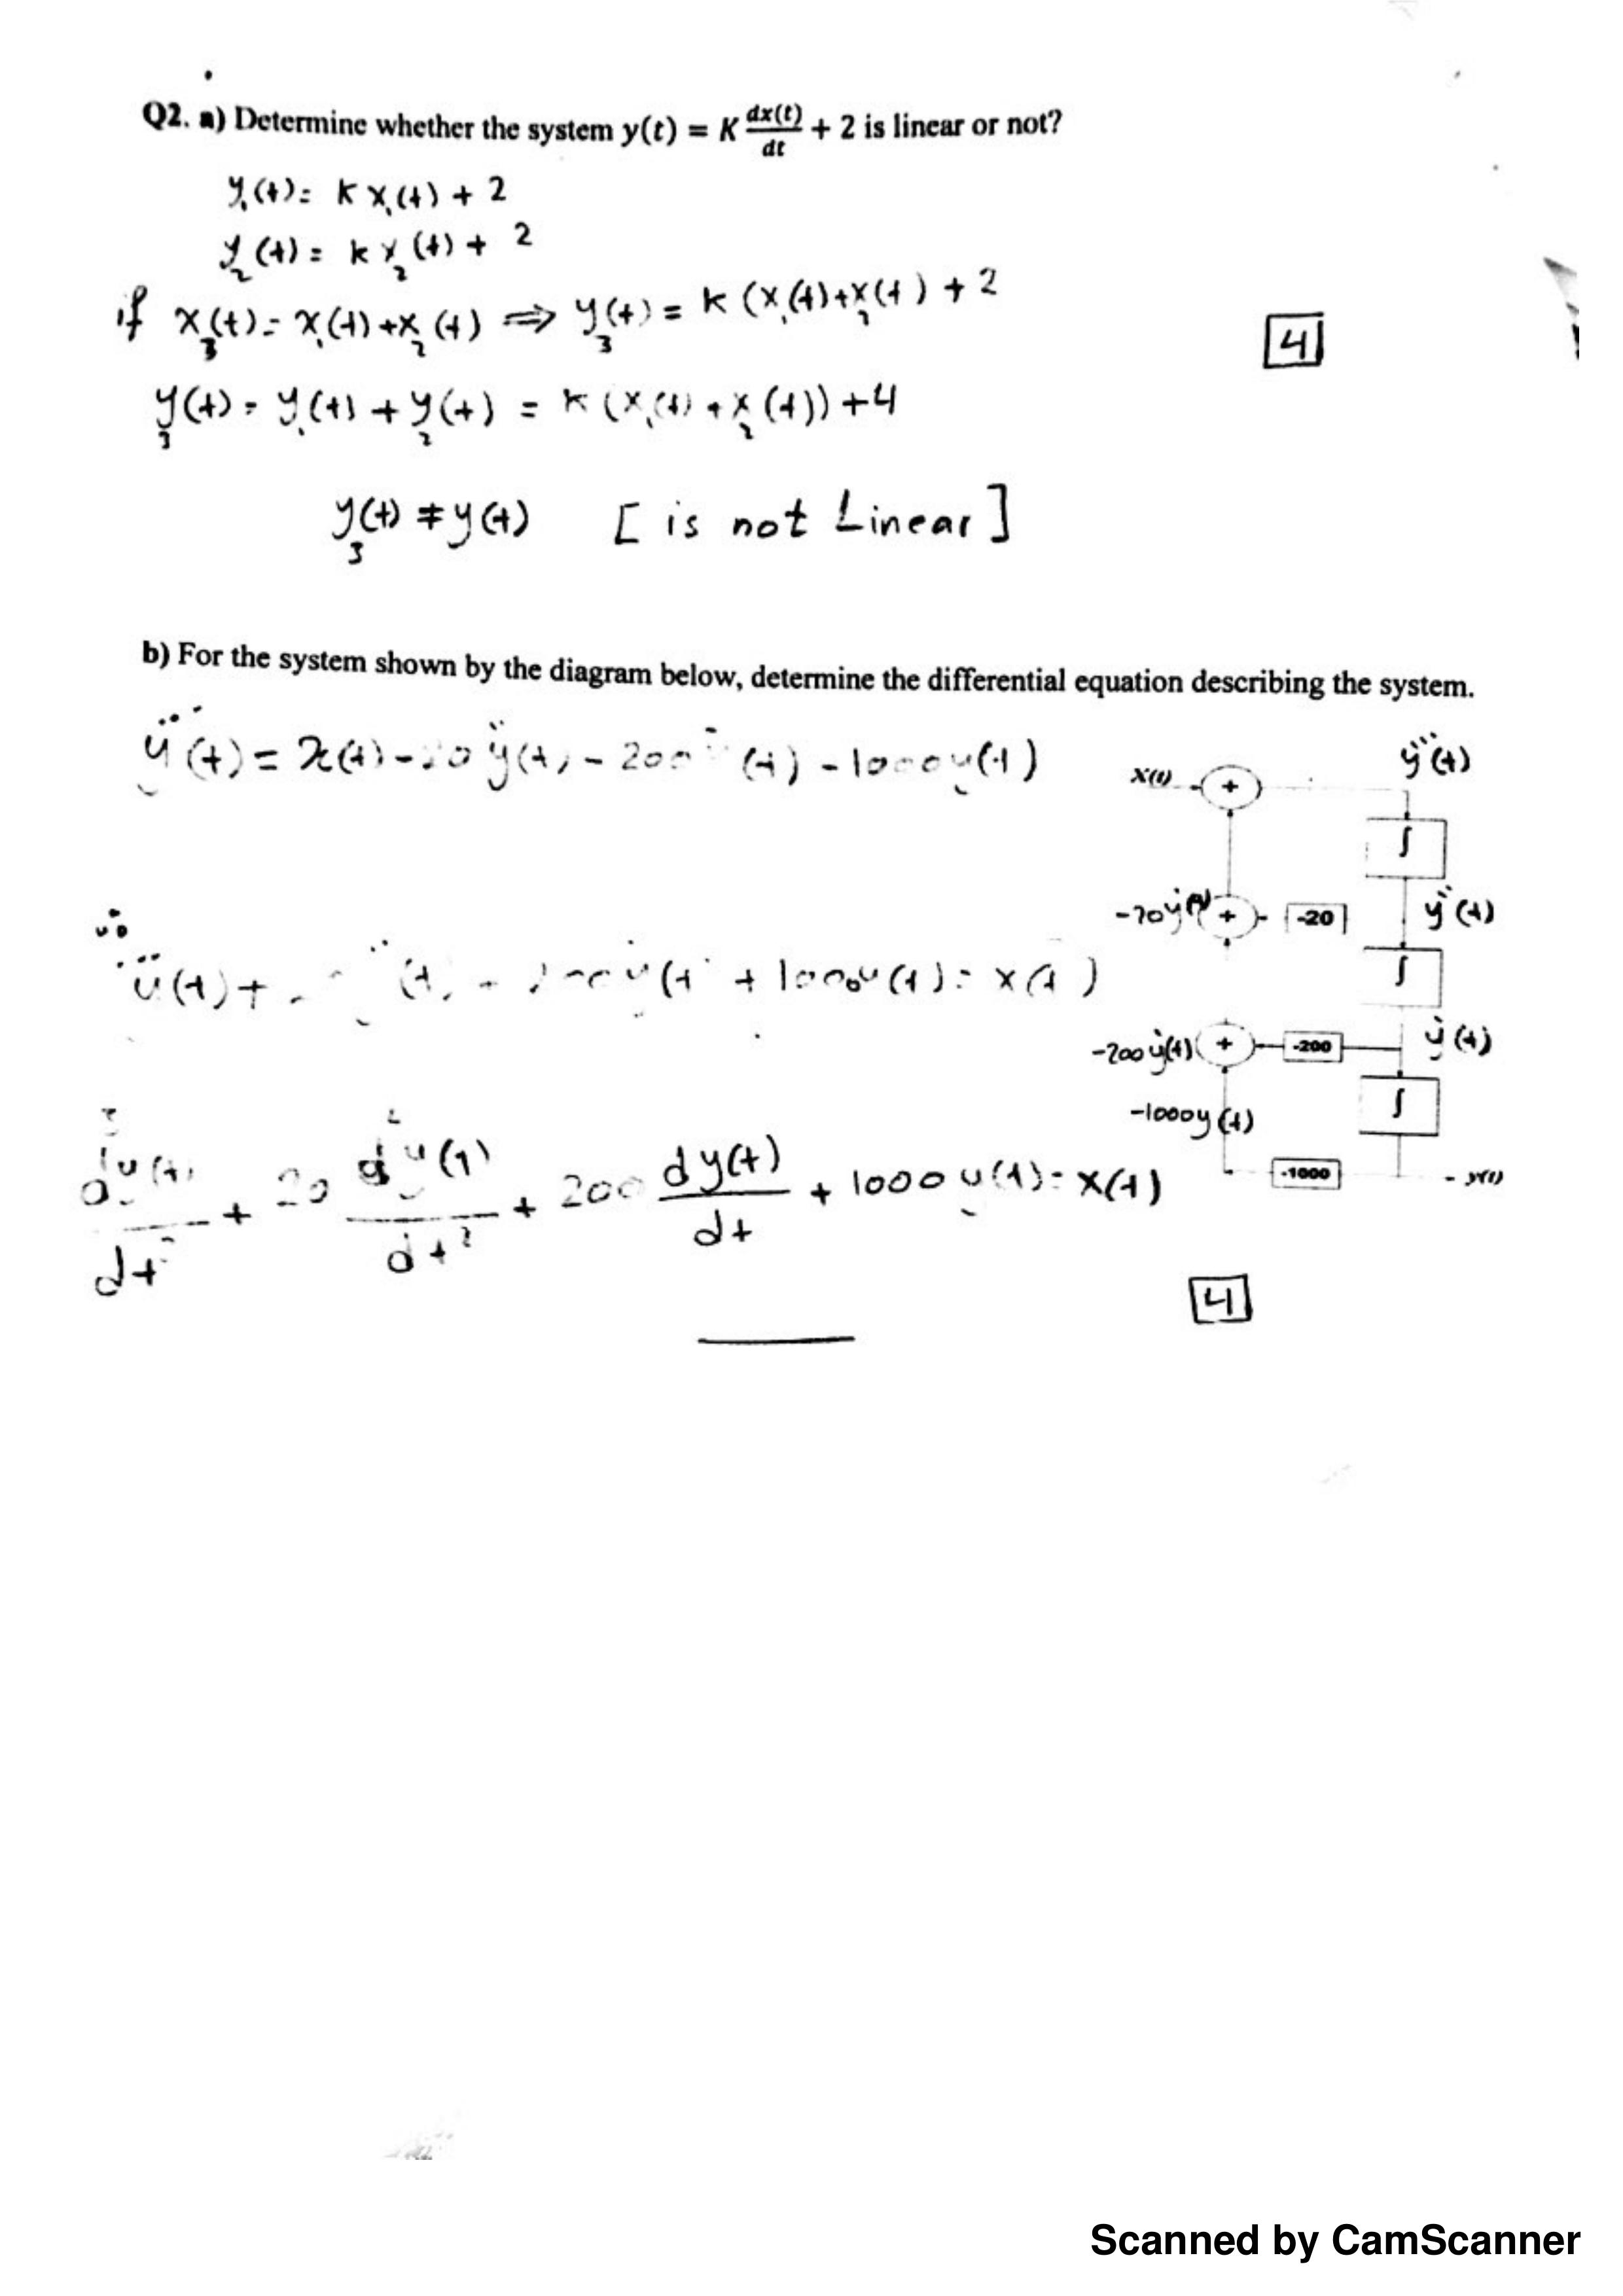 Q2. a) Determine whether the system y(t) = K dx(t)/dt + 2 is linear or not?
y₁(t) = k x₁(t) + 2
y₂(t) = k x₂(t) + 2
if x₃(t) = x₁(t) + x₂(t) ⇒ y₃(t) = k (x₁(t) + x₂(t)) + 2
4
y₃(t) = y₁(t) + y₂(t) = k (x₁(t) + x₂(t)) + 4
y₃(t) ≠ y(t) [ is not Linear ]
b) For the system shown by the diagram below, determine the differential equation describing the system.
y⃛(t) = x(t) - 20 ÿ(t) - 200 (t) - 1000 y(t)
x(t) + y⃛(t)
∫
-20ẏ(t) + -20 ÿ(t)
∫
y⃛(t) + (t) + 200 ẏ(t) + 1000 y(t) = x(t)
-200 ẏ(t) + -200 ẏ(t)
∫
-1000 y(t)
-1000 y(t)
d³y(t)/dt³ + 20 d²y(t)/dt² + 200 dy(t)/dt + 1000 y(t) = x(t)
4
Scanned by CamScanner